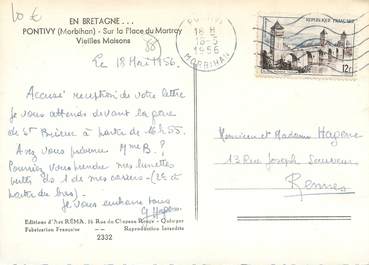 10 €
EN BRETAGNE...
PONTIVY (Morbihan) - Sur la Place du Martray
Vieilles Maisons
PONTIVY
18 H
18-5
1956
MORBIHAN
REPUBLIQUE FRANÇAISE
12F
Le 18 Mai 1956.
Accusé réception de votre lettre
Je vous attends devant la gare
de St Brieuc à partir de 16h55.
Avez vous prévenu Mme B. ?
Pourriez vous prendre mes lunettes
dans 1 de mes casiers - (2e à
partir du bas) -
Je vous embrasse tous
Monsieur et Madame Hagene
13 Rue Joseph Sauveur
Rennes
Editions d'Art RÉMA,
Fabrication Française — Reproduction Interdite
2332